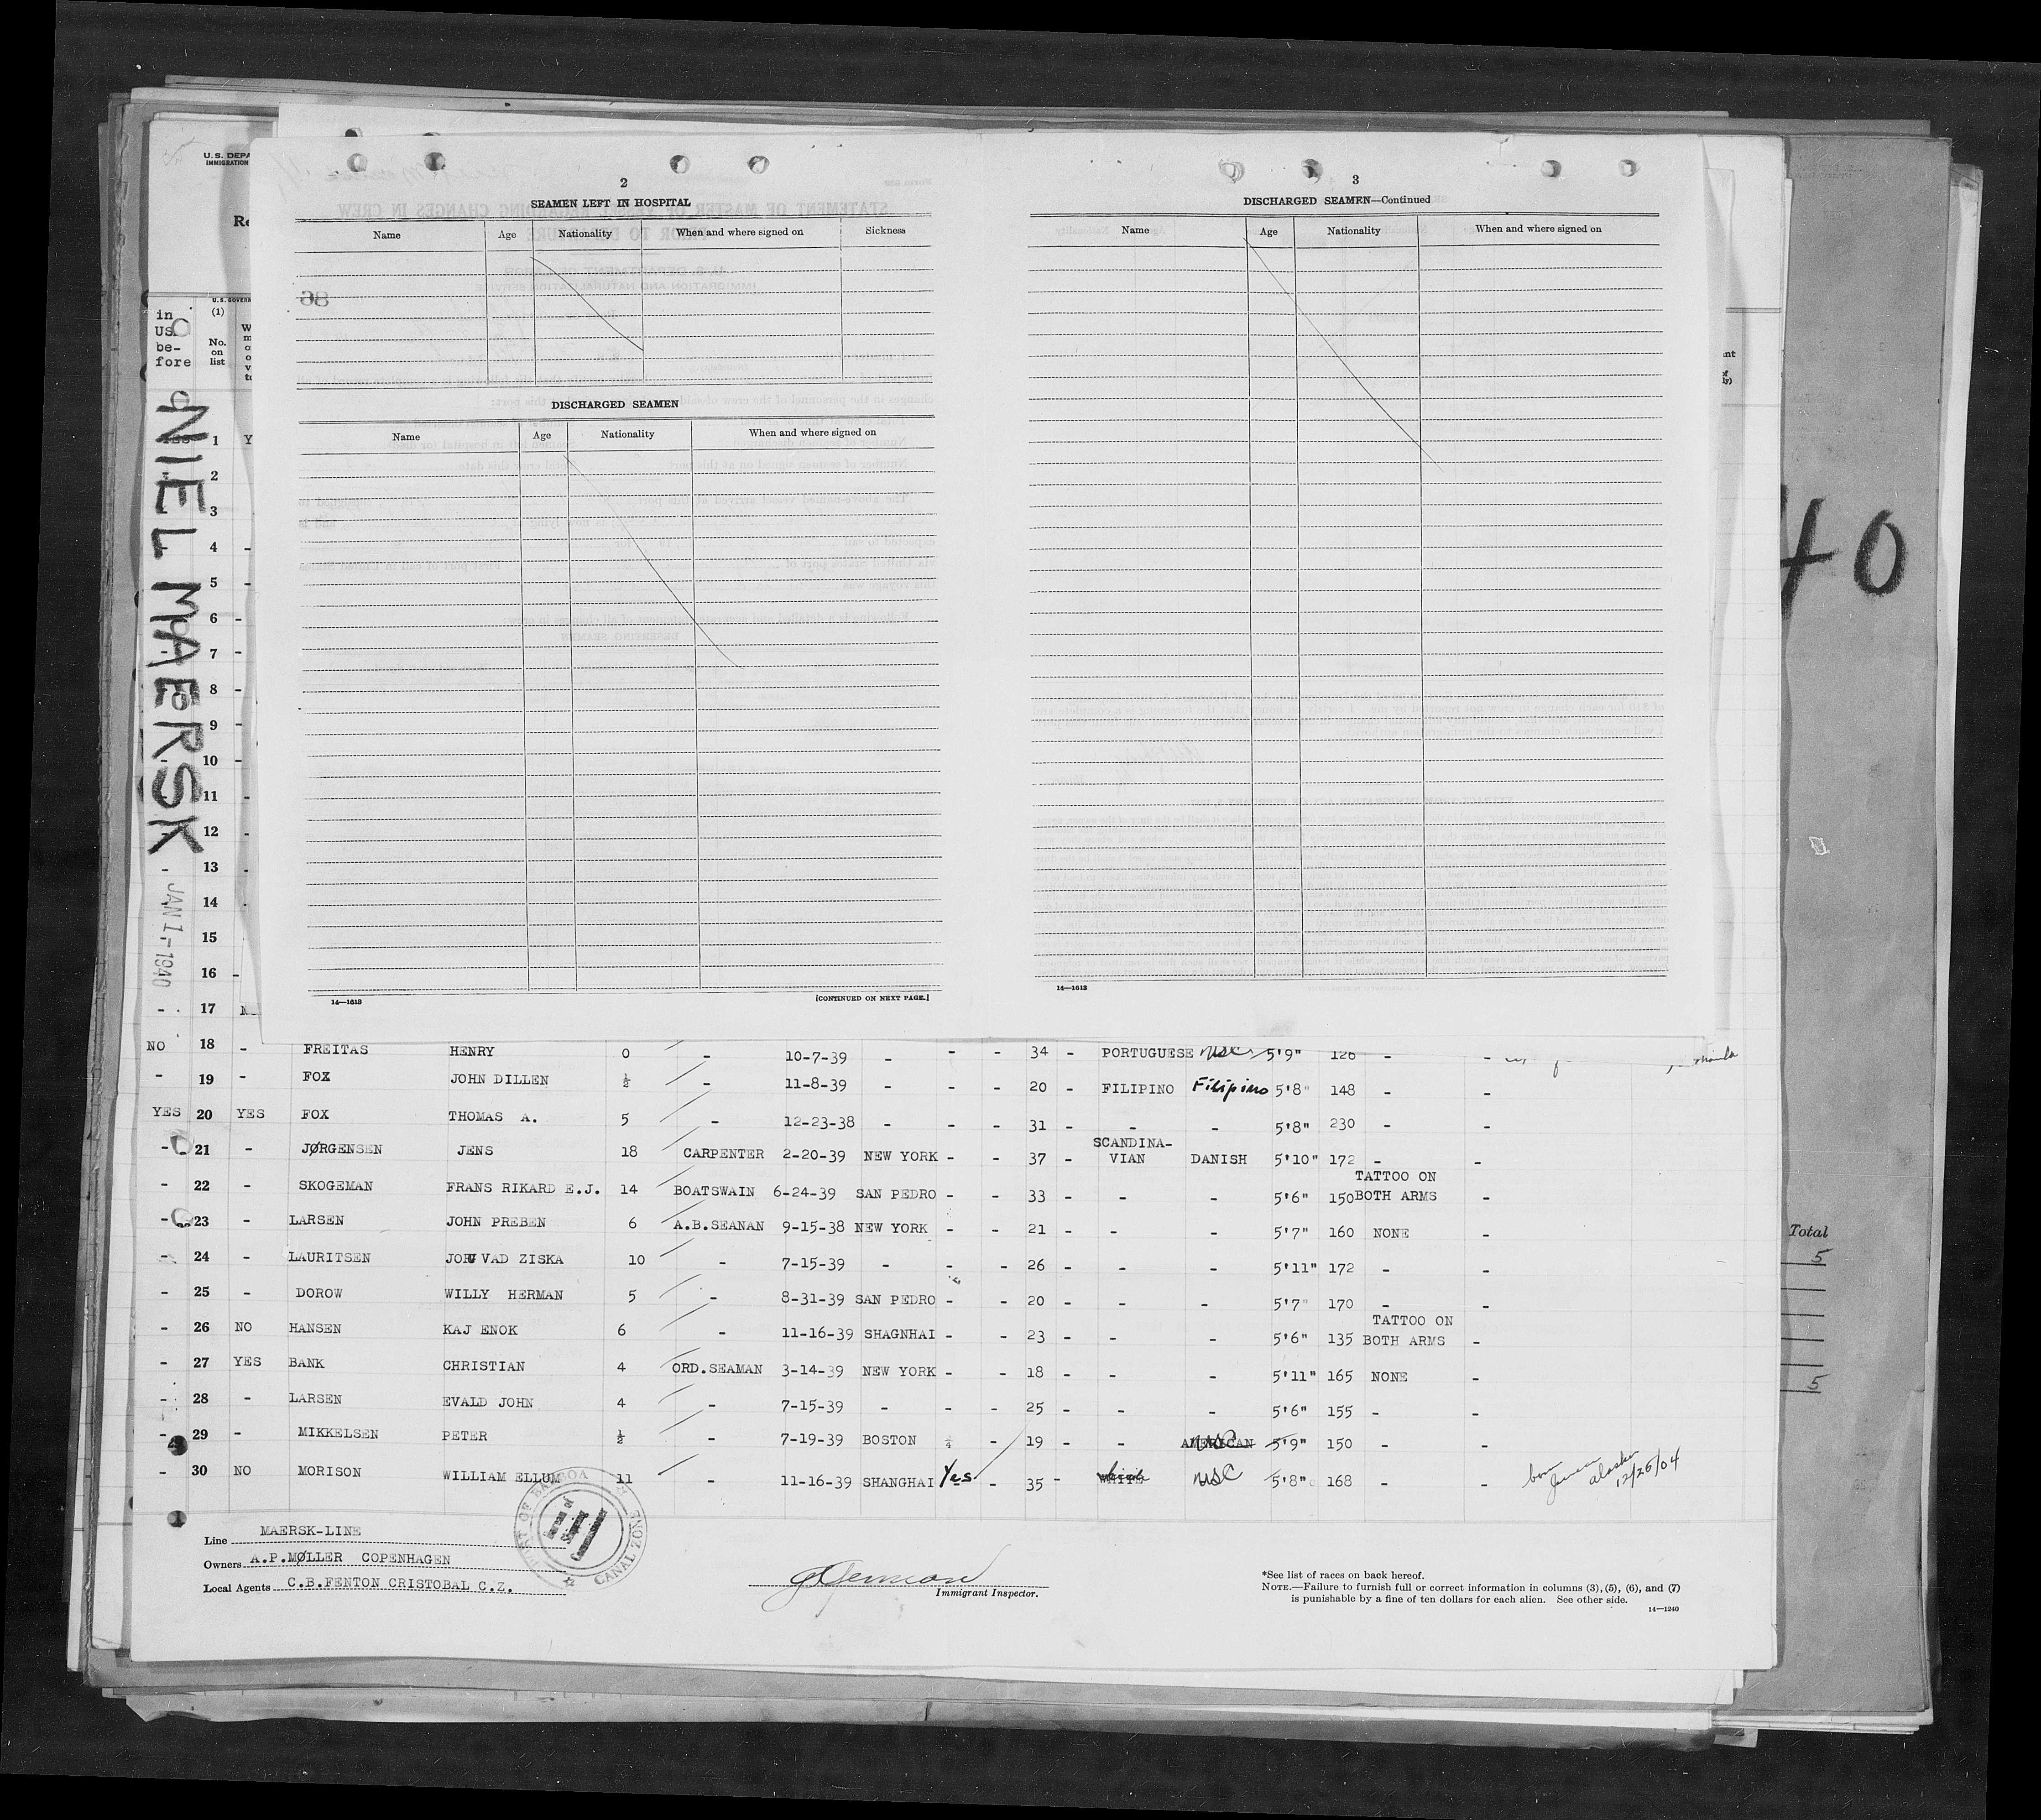 U.S. DEPA
IMMIGRATION
Re
U.S. GOVERN
in
US.
be-
fore
(1)
No.
on
list
NIEL MAERSK
JAN 1-1940
2
SEAMEN LEFT IN HOSPITAL
Name Age Nationality When and where signed on Sickness
DISCHARGED SEAMEN
Name Age Nationality When and where signed on
14—1613 [CONTINUED ON NEXT PAGE.]
3
DISCHARGED SEAMEN—Continued
Name Age Nationality When and where signed on
14—1613
40
Total
5
5
1 Y
2
3
4 -
5 -
6 -
7 -
8 -
9 -
10 -
11 -
12 -
13 -
14 -
15
16 -
17
NO 18 - FREITAS HENRY 0 - 10-7-39 - - - 34 - PORTUGUESE USC 5'9" 126 - -
- 19 - FOX JOHN DILLEN ½ - 11-8-39 - - - 20 - FILIPINO Filipino 5'8" 148 - -
YES 20 YES FOX THOMAS A. 5 - 12-23-38 - - - 31 - - - 5'8" 230 - -
- 21 - JØRGENSEN JENS 18 CARPENTER 2-20-39 NEW YORK - - 37 - SCANDINA-
VIAN DANISH 5'10" 172 - -
- 22 - SKOGEMAN FRANS RIKARD E.J. 14 BOATSWAIN 6-24-39 SAN PEDRO - - 33 - - - 5'6" 150 TATTOO ON
BOTH ARMS -
- 23 - LARSEN JOHN PREBEN 6 A.B.SEANAN 9-15-38 NEW YORK - - 21 - - - 5'7" 160 NONE -
24 - LAURITSEN VAD ZISKA 10 - 7-15-39 - - - 26 - - - 5'11" 172 - -
- 25 - DOROW WILLY HERMAN 5 - 8-31-39 SAN PEDRO - - 20 - - - 5'7" 170 - -
- 26 NO HANSEN KAJ ENOK 6 - 11-16-39 SHAGNHAI - - 23 - - - 5'6" 135 TATTOO ON
BOTH ARMS -
- 27 YES BANK CHRISTIAN 4 ORD.SEAMAN 3-14-39 NEW YORK - - 18 - - - 5'11" 165 NONE -
- 28 - LARSEN EVALD JOHN 4 - 7-15-39 - - - 25 - - - 5'6" 155 - -
- 29 - MIKKELSEN PETER ½ - 7-19-39 BOSTON - 19 - - AMERICAN USC 5'9" 150 - -
- 30 NO MORISON WILLIAM ELLUM 11 - 11-16-39 SHANGHAI Yes - 35 - WHITE USC 5'8" 168 - - born
alaska
12/26/04
Line MAERSK-LINE
Owners A.P.MØLLER COPENHAGEN
Local Agents C.B.FENTON CRISTOBAL C.Z.
PORT OF BALBOA
CANAL ZONE
Bureau of
Shipping
Commissioner
Immigrant Inspector.
*See list of races on back hereof.
NOTE.—Failure to furnish full or correct information in columns (3), (5), (6), and (7)
is punishable by a fine of ten dollars for each alien. See other side.
14—1240